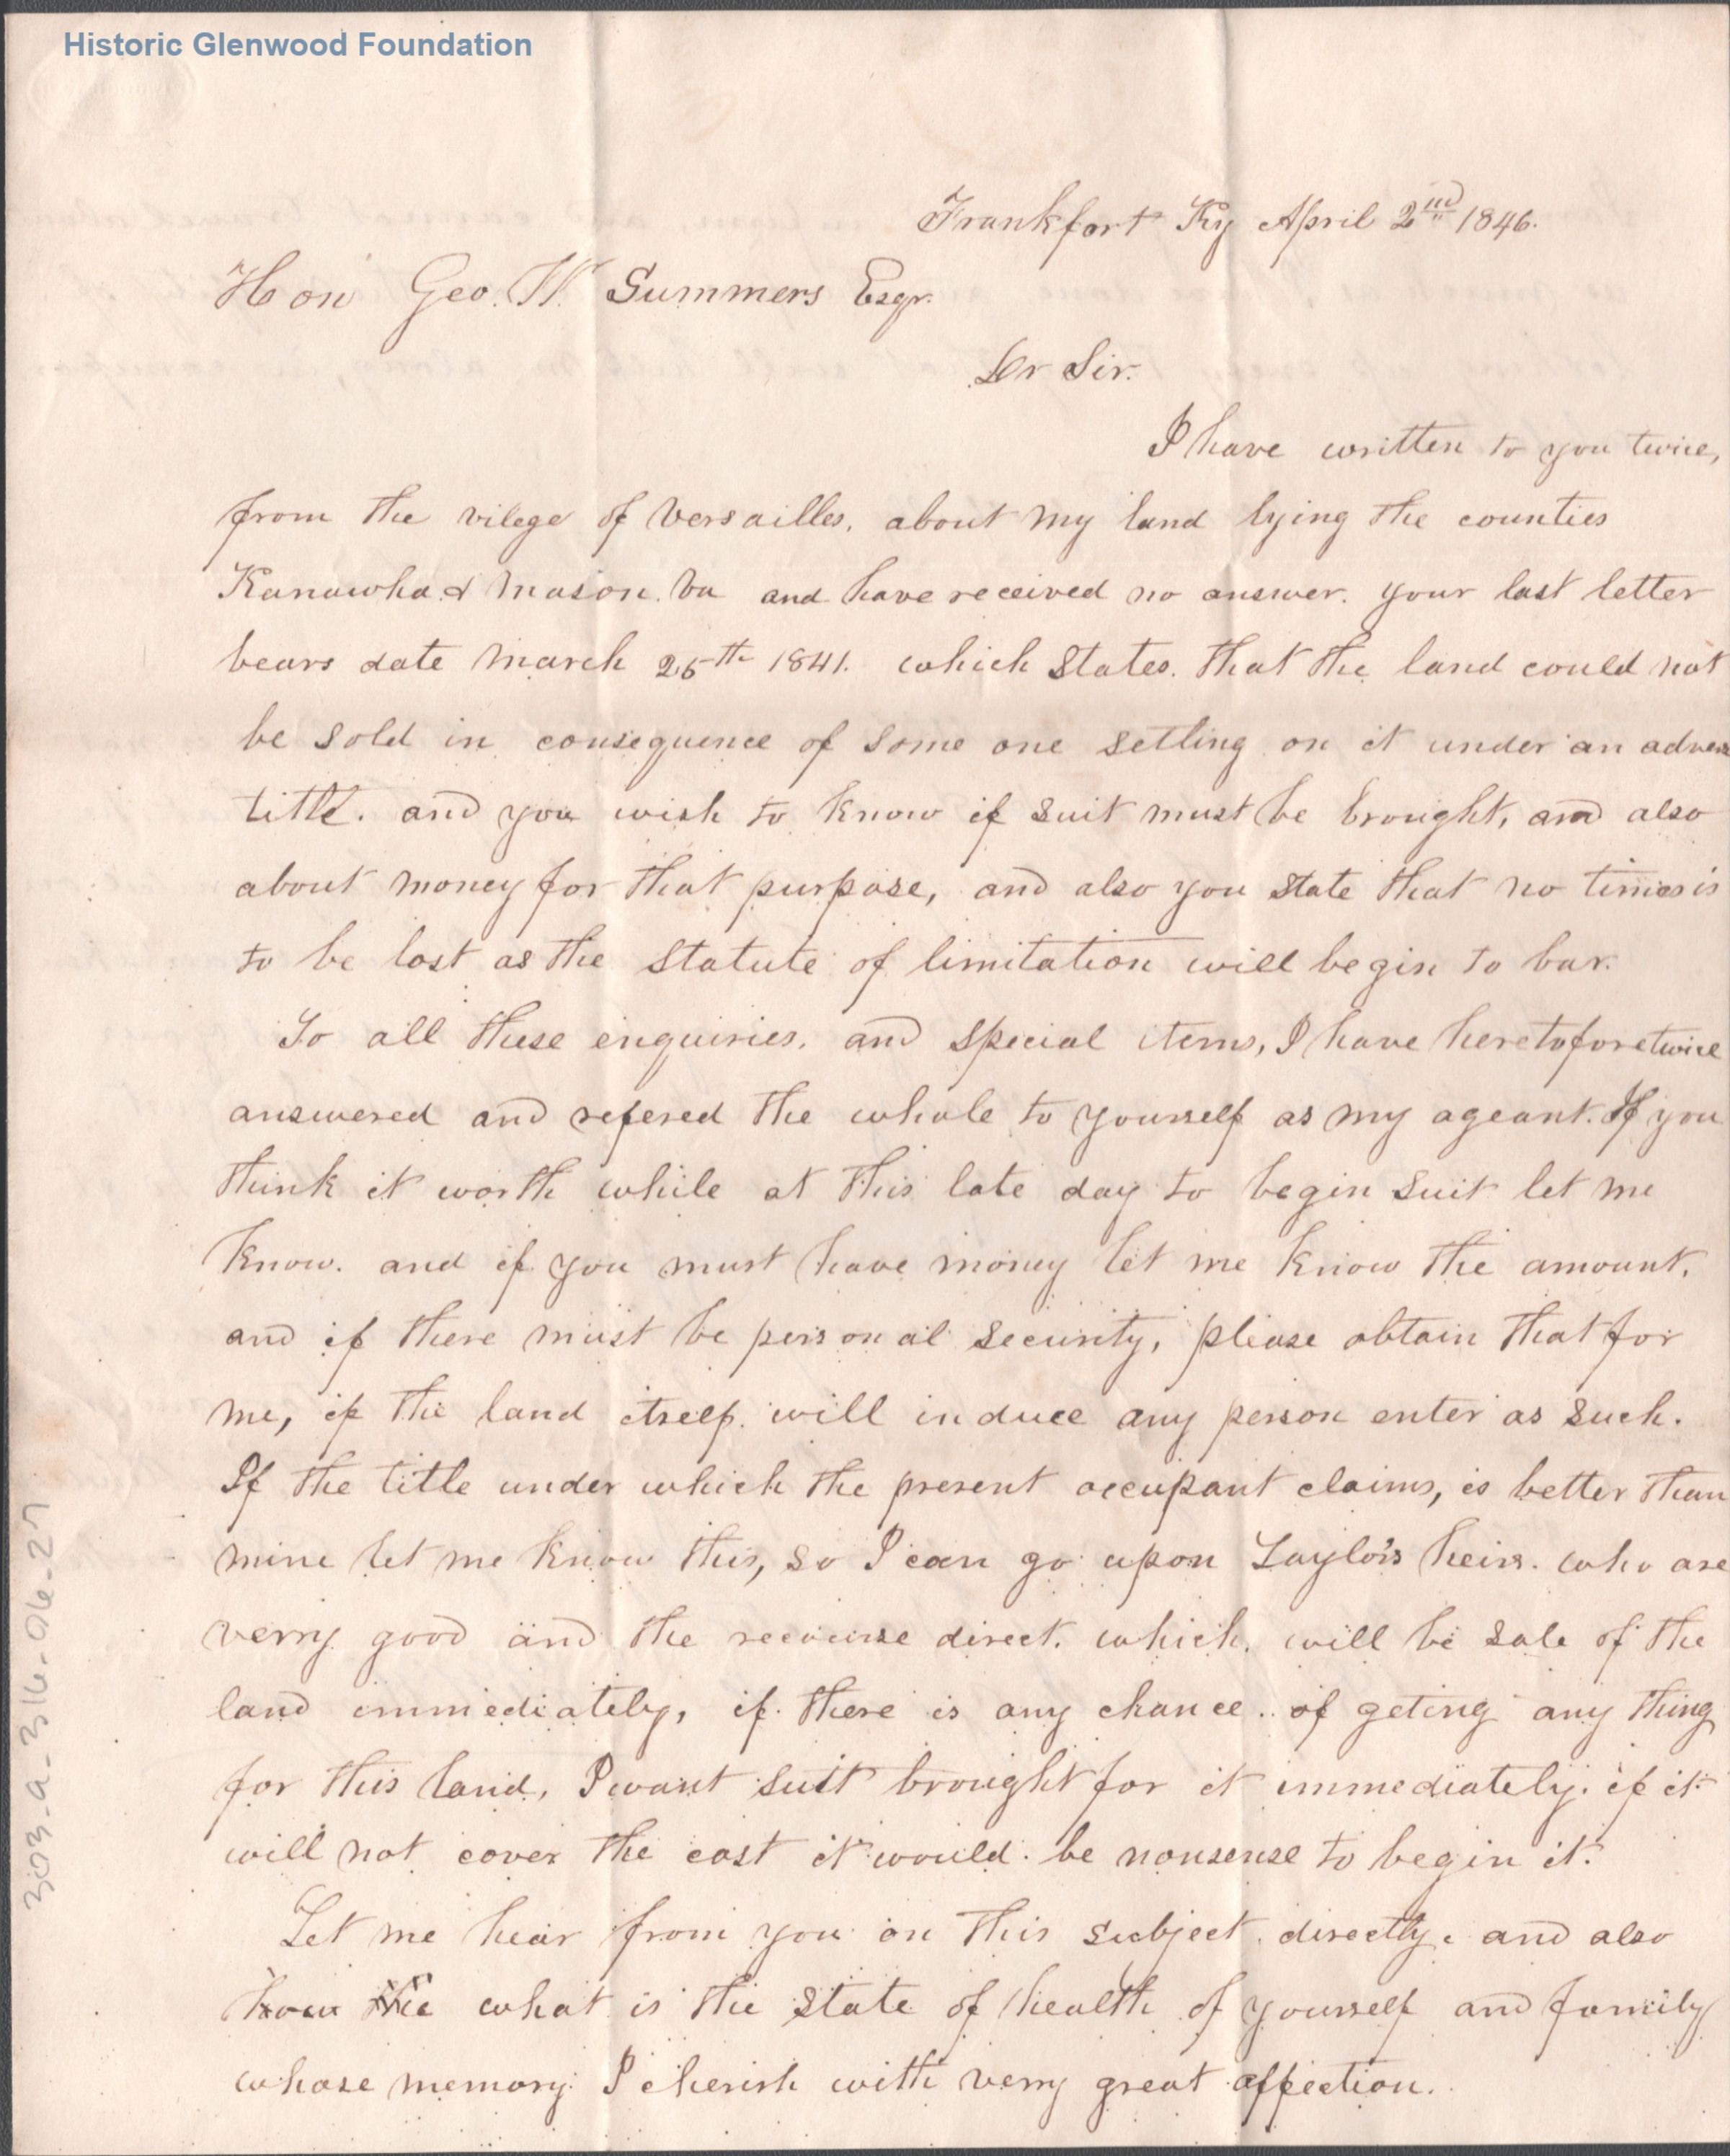 Historic Glenwood Foundation
Frankfort Ky April 2nd 1846.
Hon Geo. W. Summers Esqr.
Dr Sir.
I have written to you twice,
from the vilege of Versailles, about my land lying the counties
Kanawha & Mason. Va and have received no answer. your last letter
bears date March 25th 1841. which States. that the land could not
be sold in consequence of some one setling on it under an adverse
title. and you wish to know if suit must be brought, and also
about money for that purpose, and also you state that no times is
to be lost as the Statute of limitation will begin to bar.
To all these enquiries. and special items, I have heretofore twice
answered and refered the whole to yourself as my ageant. If you
think it worth while at this late day to begin suit let me
know. and if you must have money let me know the amount,
and if there must be personal security, please obtain that for
me, if the land itself will induce any person enter as such.
If the title under which the present occupant claims, is better than
mine let me know this, so I can go upon Taylors heirs. who are
verry good and the recourse direct. which. will be sale of the
land immediately, if there is any chance. of geting any thing
for this land, I want suit brought for it immediately. if it
will not cover the cost it would be nonsense to begin it.
Let me hear from you on this subject directly. and also
how the what is the state of health of yourself and family
whose memory I cherish with verry great affection.
303-a-316-06-27